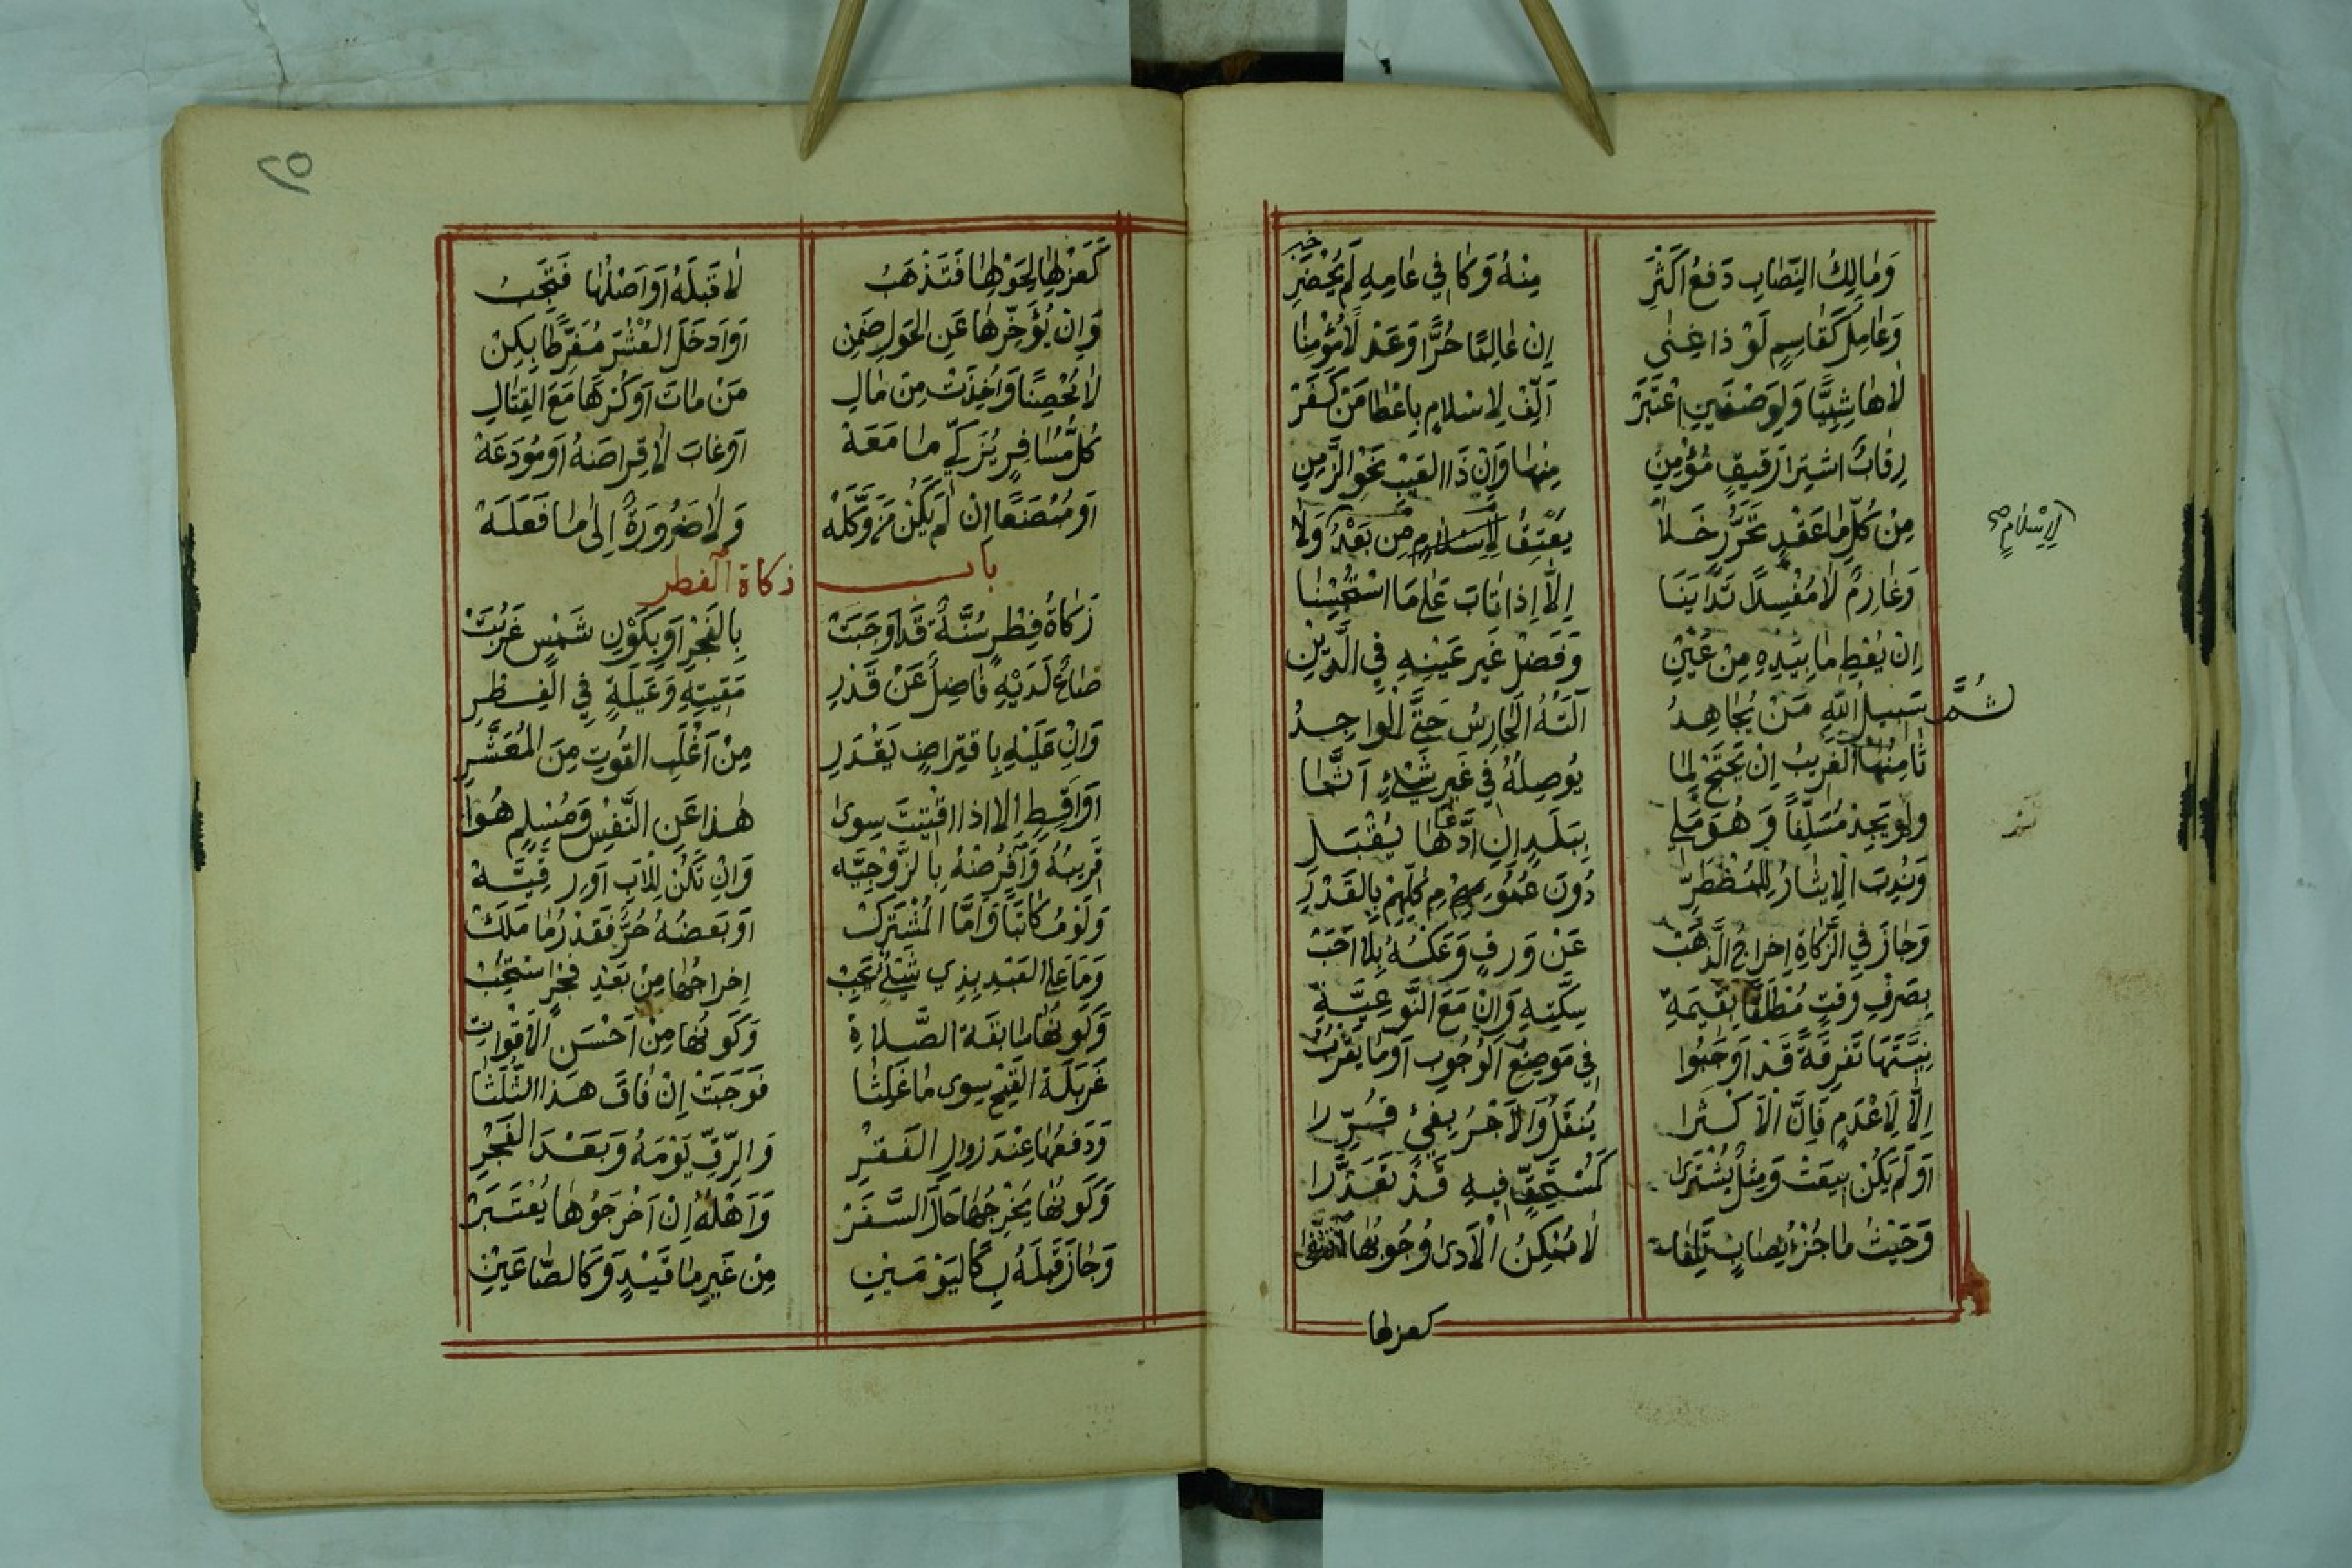 وَمَالِكُ النِّصَابِ دَفعُ اَكْثَرِ مِنْهُ وَكَافِي عَامِهِ لَم يُحْضَرِ
وَعَامِلٌ كَقَاسِمٍ لَوْ ذَا غِنٰى اِن عَالِمًا حُرًّا وَعَدْلًا مُؤْمِنا
لَا هَاشِمِيًّا وَلِوَصْفَينِ اعْتَبَرَ اَلِّفْ لِاسْلَامٍ بِاِعْطَا مَنْ كَفَرْ
رِقَابٌ اشتِرَا رَقيقٍ مُؤْمِنِ مِنهَا وَاِنْ ذَا العَيْبِ نَحْوَ الزَّمِنِ
مِنْ كُلِّ مَا عَقْدِ تَحَرُّرٍ خَلَا يُعْتَقُ لِلْاِسْلَامِ مِن بَعْدُ وَلَا
لِاِسْلَامٍ صح
وَغَارِمٌ لَا مُفْسِدًا تَدَايَنَا اِلَّا اِذَا تَابَ عَلَى مَا اسْتُحْسِنَا
اِن يُعْطِ مَا بِيَدِهِ مِنْ عَيْنِ وَفَضْلَ غَيرِ عَيْنِهِ فِي الدَّيْنِ
ثُمَّ سَبيلُ اللهِ مَنْ يُجَاهِدُ آلَتُهُ الحَارِسُ حَتَّى الوَاجِدُ
ثَامِنُهَا الغَرِيبُ اِنْ يَحْتَجْ لِمَا يُوصِلُهُ فِي غَيرِ شَيْءٍ اَثَّمَا
وَلَو يَجِدْ مُسَلِّفًا وَهُوَ مَلِي بِبَلَدٍ اِنِ ادَّعَاهَا يُقْبَلِ
وَنُدِبَ الْاِيثَارُ لِلْمُضْطَرِّ دُونَ عُمُومِهِمْ كُلِّهِمْ بِالقَدْرِ
وَجَازَ فِي الزَّكَاةِ اِخرَاجُ الذَّهَبْ عَنْ وَرِقٍ وَعَكْسُهُ بِلَا احَبْ
بِصَرْفِ وَقْتٍ مُطْلَقًا بِقِيمَةِ سِكَّتِهِ وَاِنْ مَعَ النَّوعِيَّةِ
بِنِيَّتِهَا تَفرِقَةً قَدْ اَوجَبُوا فِي مَوضِعِ الوُجُوبِ اَوْ مَا يَقْرُبُ
اِلَّا لِاَعْدَمٍ فَاِنَّ الْاَكْثَرَا يُنقَلُ وَالْاَجْرُ بِفَيْءٍ قُرِّرَا
اَوْ لَم يَكُنْ بِيعَتْ وَمِثْلٌ يُشْتَرَى كَمُسْتَحِقٍّ فِيهِ قَدْ تَعَذَّرَا
وَحَيْثُ مَا جُزْءُ نِصَابٍ تَلِفَا لَا مُمْكِنُ الْاَدَا وُجُوبُهَا انْتَفَى
كعزلها
٢٥
كَعَزْلِهَا لِحَوْلِهَا فَتَذْهَبُ لَا قَبْلَهُ اَوْ اَصْلُهَا فَتَجِبُ
وَاِنْ يُؤَخِّرْهَا عَنِ الحَولِ ضَمِنْ اَوْ اَدخَلَ العُشْرَ مُفَرِّطًا يَكِنْ
لَا مُحْصِنًا وَاُخِذَتْ مِن مَالِ مَنْ مَاتَ اَوْ كَرْهًا مَعَ القِتَالِ
كُلُّ مُسَافِرٍ يُزَكِّي مَا مَعَهْ اَوْ غَابَ لَا قِرَاضَهُ اَوْ مُودَعَهْ
اَوْ مُبْضَعًا اِن لَم يَكُنْ مَن وَكَّلَهْ وَلَا ضَرُورَةٌ اِلَى مَا فَعَلَهْ
باب زكاة الفطر
زَكَاةُ فِطْرٍ سُنَّةٌ قَد اَوجَبَتْ بِالفَجْرِ اَوْ بِكَوْنِ شَمْسٍ غَرُبَتْ
صَاعٌ لَدَيْهِ فَاضِلٌ عَنْ قَدْرِ مَقِيتِهِ وَعَيلَةٍ فِي الفِطْرِ
وَاِنْ عَلَيْهِ بِاقتِرَاضٍ يَقْدِرِ مِنْ اَغْلَبِ القُوتِ مِنَ المُعَشَّرِ
اَوْ اَقِطٍ اِلَّا اِذَا اقْتِيتَ سِوَى هٰذَا عَنِ النَّفْسِ وَمُسْلِمٍ هُوَا
قَرِيبُهُ وَافْرِضْهُ بِالزَّوْجِيَّه وَاِنْ تَكُنْ لِلْاَبِ اَوْ رِقِّيَّهْ
وَلَوْ مُكَاتَبًا وَاَمَّا المُشْتَرَكْ اَوْ بَعضُهُ حُرٌّ فَقَدْرُ مَا مَلَكْ
وَمَا عَلَى العَبْدِ بِذِي شَيْءٌ يَجِبْ اِخرَاجُهَا مِنْ بَعْدِ فَجْرٍ اسْتُحِبْ
وَكَونُهَا سَابِقَةَ الصَّلَاةِ وَكَونُهَا مِنْ اَحْسَنِ الْاَقْوَاتِ
غَربَلَةُ القَمْحِ سِوَى مَا غَلِثَا فَوَجَبَتْ اِنْ فَاقَ هٰذَا الثُّلُثَا
وَدَفعُهَا عِنْدَ زَوَالِ الفَقْرِ وَالرِّقِّ يَوْمَهُ وَبَعْدَ الفَجْرِ
وَكَونُهَا يُخْرِجُهَا حَالَ السَّفَرْ وَاَهْلُهُ اِنْ اَخْرَجُوهَا يُعْتَبَرْ
وَجَازَ قَبلَهُ بِكَاليَوْمَينِ مِنْ غَيرِ مَا قَيْدٍ وَكَالصَّاعَينِ